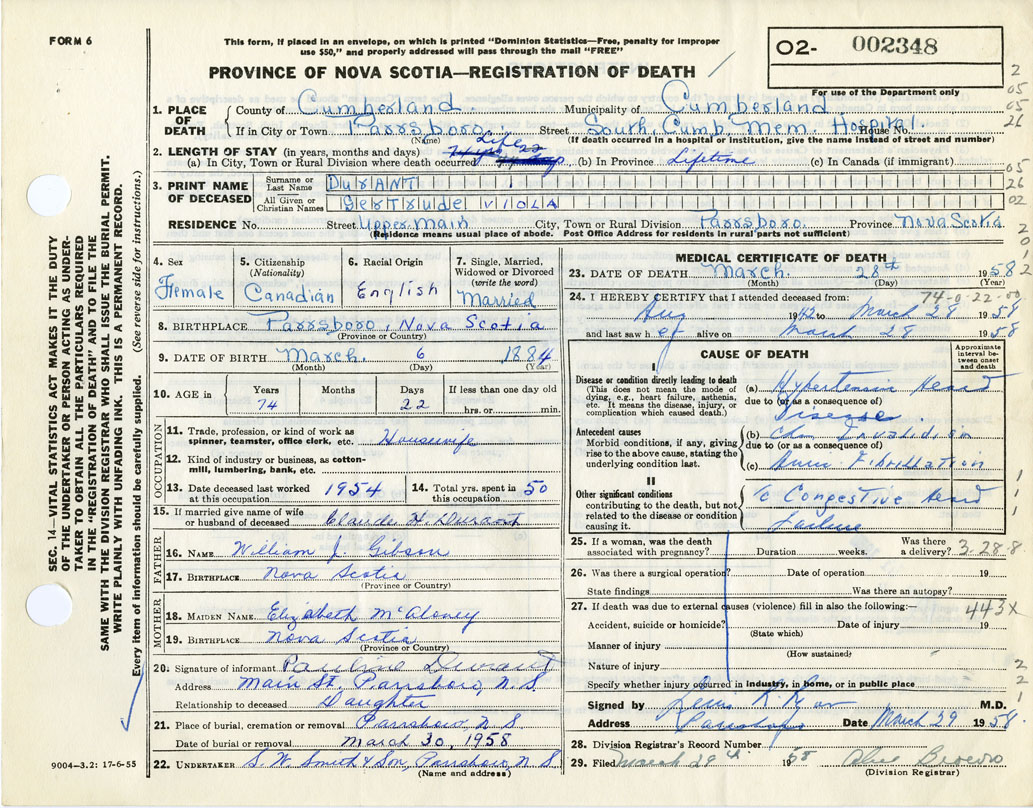 FORM 6
This form, if placed in an envelope, on which is printed "Dominion Statistics—Free, penalty for improper
use $50," and properly addressed will pass through the mail "FREE"
PROVINCE OF NOVA SCOTIA—REGISTRATION OF DEATH
02- 002348
For use of the Department only
1. PLACE OF DEATH
County of Cumberland Municipality of Cumberland
If in City or Town Parrsboro. Street South. Cumb. Mem. Hospital. House No.
(Name) (If death occurred in a hospital or institution, give the name instead of street and number)
2. LENGTH OF STAY (in years, months and days) Life
(a) In City, Town or Rural Division where death occurred (b) In Province Lifetime (c) In Canada (if immigrant)
3. PRINT NAME OF DECEASED
Surname or Last Name DurANT
All Given or Christian Names GerTrude VIOLA
RESIDENCE No. Street Upper Main City, Town or Rural Division Parrsboro. Province Nova Scotia
(Residence means usual place of abode. Post Office Address for residents in rural parts not sufficient)
4. Sex Female
5. Citizenship (Nationality) Canadian
6. Racial Origin English
7. Single, Married, Widowed or Divorced (write the word) Married
8. BIRTHPLACE Parrsboro, Nova Scotia
(Province or Country)
9. DATE OF BIRTH March. 6 1884
(Month) (Day) (Year)
10. AGE in Years 74 Months Days 22 If less than one day old hrs. or min.
OCCUPATION
11. Trade, profession, or kind of work as spinner, teamster, office clerk, etc. Housewife
12. Kind of industry or business, as cotton-mill, lumbering, bank, etc.
13. Date deceased last worked at this occupation 1954 14. Total yrs. spent in this occupation 50
15. If married give name of wife or husband of deceased Claude H. Durant
FATHER
16. NAME William J. Gibson
17. BIRTHPLACE Nova Scotia
(Province or Country)
MOTHER
18. MAIDEN NAME Elizabeth McAloney
19. BIRTHPLACE Nova Scotia
(Province or Country)
20. Signature of informant Pauline Durant
Address Main St. Parrsboro, N.S.
Relationship to deceased Daughter
21. Place of burial, cremation or removal Parrsboro, N S
Date of burial or removal March 30, 1958
22. UNDERTAKER S. W. Smith & Son, Parrsboro, N S
(Name and address)
MEDICAL CERTIFICATE OF DEATH
23. DATE OF DEATH March. 28th 1958
(Month) (Day) (Year)
74-0-22-00
24. I HEREBY CERTIFY that I attended deceased from:
Aug 1942 to March 28 1958
and last saw her alive on March 28 1958
CAUSE OF DEATH
Approximate interval between onset and death
I
Disease or condition directly leading to death
(This does not mean the mode of dying, e.g., heart failure, asthenia, etc. It means the disease, injury, or complication which caused death.)
(a) Hypertensive Heard
due to (or as a consequence of)
Disease
Antecedent causes
Morbid conditions, if any, giving rise to the above cause, stating the underlying condition last.
(b)
due to (or as a consequence of)
(c) Fibrillation
II
Other significant conditions contributing to the death, but not related to the disease or condition causing it.
c Congestive Heard
Failure
25. If a woman, was the death associated with pregnancy? Duration weeks. Was there a delivery? 3-28-8
26. Was there a surgical operation? Date of operation 19
State findings Was there an autopsy?
27. If death was due to external causes (violence) fill in also the following:— 443X
Accident, suicide or homicide? Date of injury 19
(State which)
Manner of injury
(How sustained)
Nature of injury
Specify whether injury occurred in industry, in home, or in public place
Signed by M.D.
Address Parrsboro Date March 29 1958.
28. Division Registrar's Record Number
29. Filed March 29th 1958
(Division Registrar)
SEC. 14—VITAL STATISTICS ACT MAKES IT THE DUTY
OF THE UNDERTAKER OR PERSON ACTING AS UNDER-
TAKER TO OBTAIN ALL THE PARTICULARS REQUIRED
IN THE "REGISTRATION OF DEATH" AND TO FILE THE
SAME WITH THE DIVISION REGISTRAR WHO SHALL ISSUE THE BURIAL PERMIT.
WRITE PLAINLY WITH UNFADING INK. THIS IS A PERMANENT RECORD.
Every item of information should be carefully supplied. (See reverse side for instructions.)
9004-3.2: 17-6-55
2
05
05
26
05
26
02
2
0
1
2
1
1
1
2
2
1